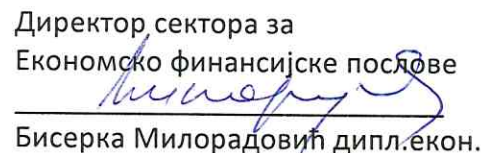 Директор сектора за
Економско финансијске послове
Бисерка Милорадовић дипл.екон.